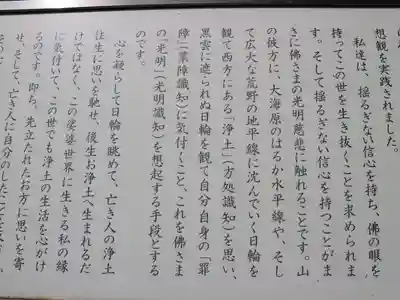 想観を実践されました。
私達は、揺るぎない信心を持ち、佛の眼を
持ってこの世を生き抜くことを求められま
す。そして、揺るぎない信心を持つことがま
さに佛さまの光明慈悲に触れることです。山
の彼方に、大海原のはるか水平線や、そし
て広大な荒野の地平線に沈んでいく日輪を
観て西方にある「浄土」(方処識知)を思い、
黒雲に遮られぬ日輪を観て自分自身の「罪
障」(業障識知)に気付くこと、これを佛さま
の「光明」(光明識知)を想起する手段とする
のです。
心を凝らして日輪を眺めて、亡き人の浄土
往生に思いを馳せ、後生に浄土へ生まれるだ
けではなく、この娑婆世界に生きる私の縁
に気付いて、この世でも浄土の生活を心がけ
るのです。即ち、先立たれたお方に思いを寄
せ、そして、亡き人に自分のした